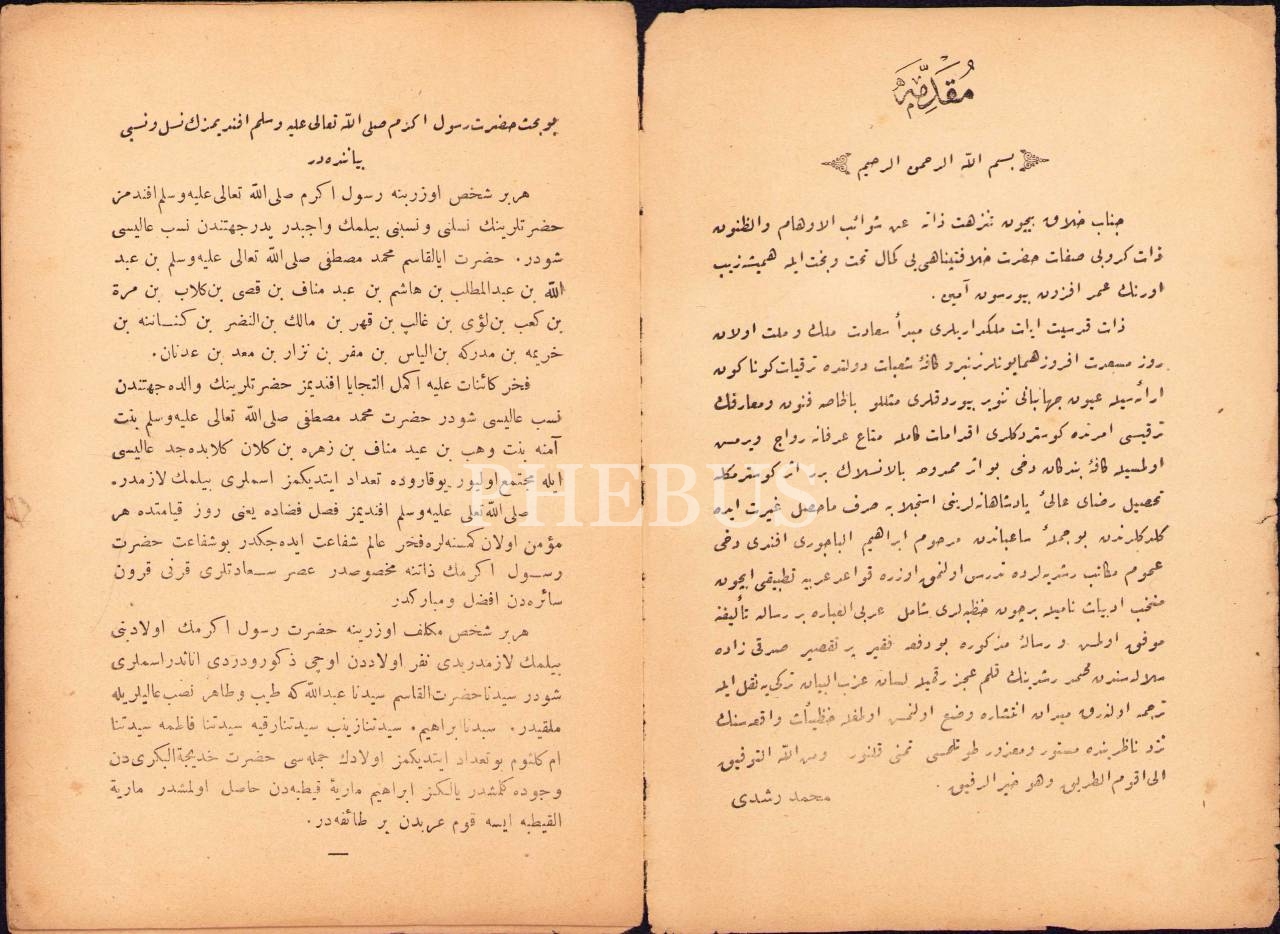 مُقَدِّمَه
بسم الله الرحمن الرحيم
جناب خلاق بيچون تنزهت ذاته عن شوائب الاوهام والظنون
ذات كروبى صفات حضرت خلافتپناهى‌يى كمال تحت وبخت ايله هميشه زيب
اورنك عمر افزون بيورسون آمين .
ذات قدسيت ايات ملكداريلرى مبدأ سعادت ملك وملت اولان
روز مسعدت افروز همايونلرندنبرو كافۀ شعبات دولتده ترقيات كوناكون
ارأه‌سيله عيون جهانيانى تنوير بيوردقلرى مثللو بالخاصه فنون ومعارفك
ترقيسى امرنده كوستردكلرى اقدامات كامله متاع عرفانه رواج ويرمش
اولمسيله كافۀ بندكان دخى بو اثر ممدوحه بالانسلاك برر اثر كوسترمكله
تحصيل رضاى عالئ پادشاهانه‌لرينى استجلابه صرف ماحصل غيرت ايده
كلدكلرندن بو جملۀ ساعياندن مرحوم ابراهيم الباجورى افندى دخى
عموم مكاتب رشديه‌لرده تدريس اولنمق اوزره قواعد عربيه تطبيقى ايچون
منتخب ادبيات ناميله برچون خطبه‌لرى شامل عربى العباره بر رساله تأليفنه
موفق اولمش ورسالۀ مذكوره بو دفعه فقير پر تقصير صدقى زاده
سلاله‌سندن محمد رشدينك قلم عجز رقميله لسان عذب البيان تركى‌يه نقل ايله
ترجمه اولنه‌رق ميدان انتشاره وضع اولنمش اولمغله خطيئات واقعه‌سنك
نزد ناظرينده مستور ومعذور طوتلمسى تمنى قلنور ومن الله التوفيق
الى اقوم الطريق وهو خير الرفيق .
محمد رشدى
بو بحث حضرت رسول اكرم صلى الله تعالى عليه وسلم افنديمزك نسل ونسبى
بياننده‌در
هربر شخص اوزرينه رسول اكرم صلى الله تعالى عليه وسلم افندمز
حضرتلرينك نسلنى ونسبنى بيلمك واجبدر پدرجهتندن نسب عاليسى
شودر . حضرت ابالقاسم محمد مصطفى صلى الله تعالى عليه وسلم بن عبد
الله بن عبدالمطلب بن هاشم بن عبد مناف بن قصى بن كلاب بن مرة
بن كعب بن لؤى بن غالب بن قهر بن مالك بن النضر بن كنـانه بن
خريمه بن مدركه بن الياس بن مفر بن نزار بن معد بن عدنان .
فخر كائنات عليه اكمل التحايا افنديمز حضرتلرينك والده جهتندن
نسب عاليسى شودر حضرت محمد مصطفى صلى الله تعالى عليه وسلم بنت
آمنه بنت وهب بن عبد مناف بن زهره بن كلان كلابده جد عاليسى
ايله مجتمع اوليور يوقاروده تعداد ايتديكمز اسملرى بيلمك لازمدر .
صلى الله تعلى عليه وسلم افنديمز فصل قضاده يعنى روز قيامتده هر
مؤمن اولان كمسنه‌لره فخر عالم شفاعت ايده‌جكدر بوشفاعت حضرت
رسـول اكرمك ذاتنه مخصوصدر عصر سـعادتلرى قرنى قرون
سائره‌دن افضل ومباركدر
هربر شخص مكلف اوزرينه حضرت رسول اكرمك اولادينى
بيلمك لازمدريدى نفر اولاددن اوچى ذكورودردى اناثدراسملرى
شودر سيدنا حضرت القاسم سيدنا عبدالله كه طيب وطاهر نصب عاليلريله
ملقبدر . سيدنا ابراهيم . سيدتنازينب سيدتنارقيه سيدتنا فاطمه سيدتنا
ام كلثوم بوتعداد ايتديكمز اولادك جمله‌سى حضرت خديجةالكبرى‌دن
وجوده كلمشدر يالكز ابراهيم مارية قيطبه‌دن حاصل اولمشدر مارية
القيطبه ايسه قوم عربدن بر طائفه‌در .
PHEBUS